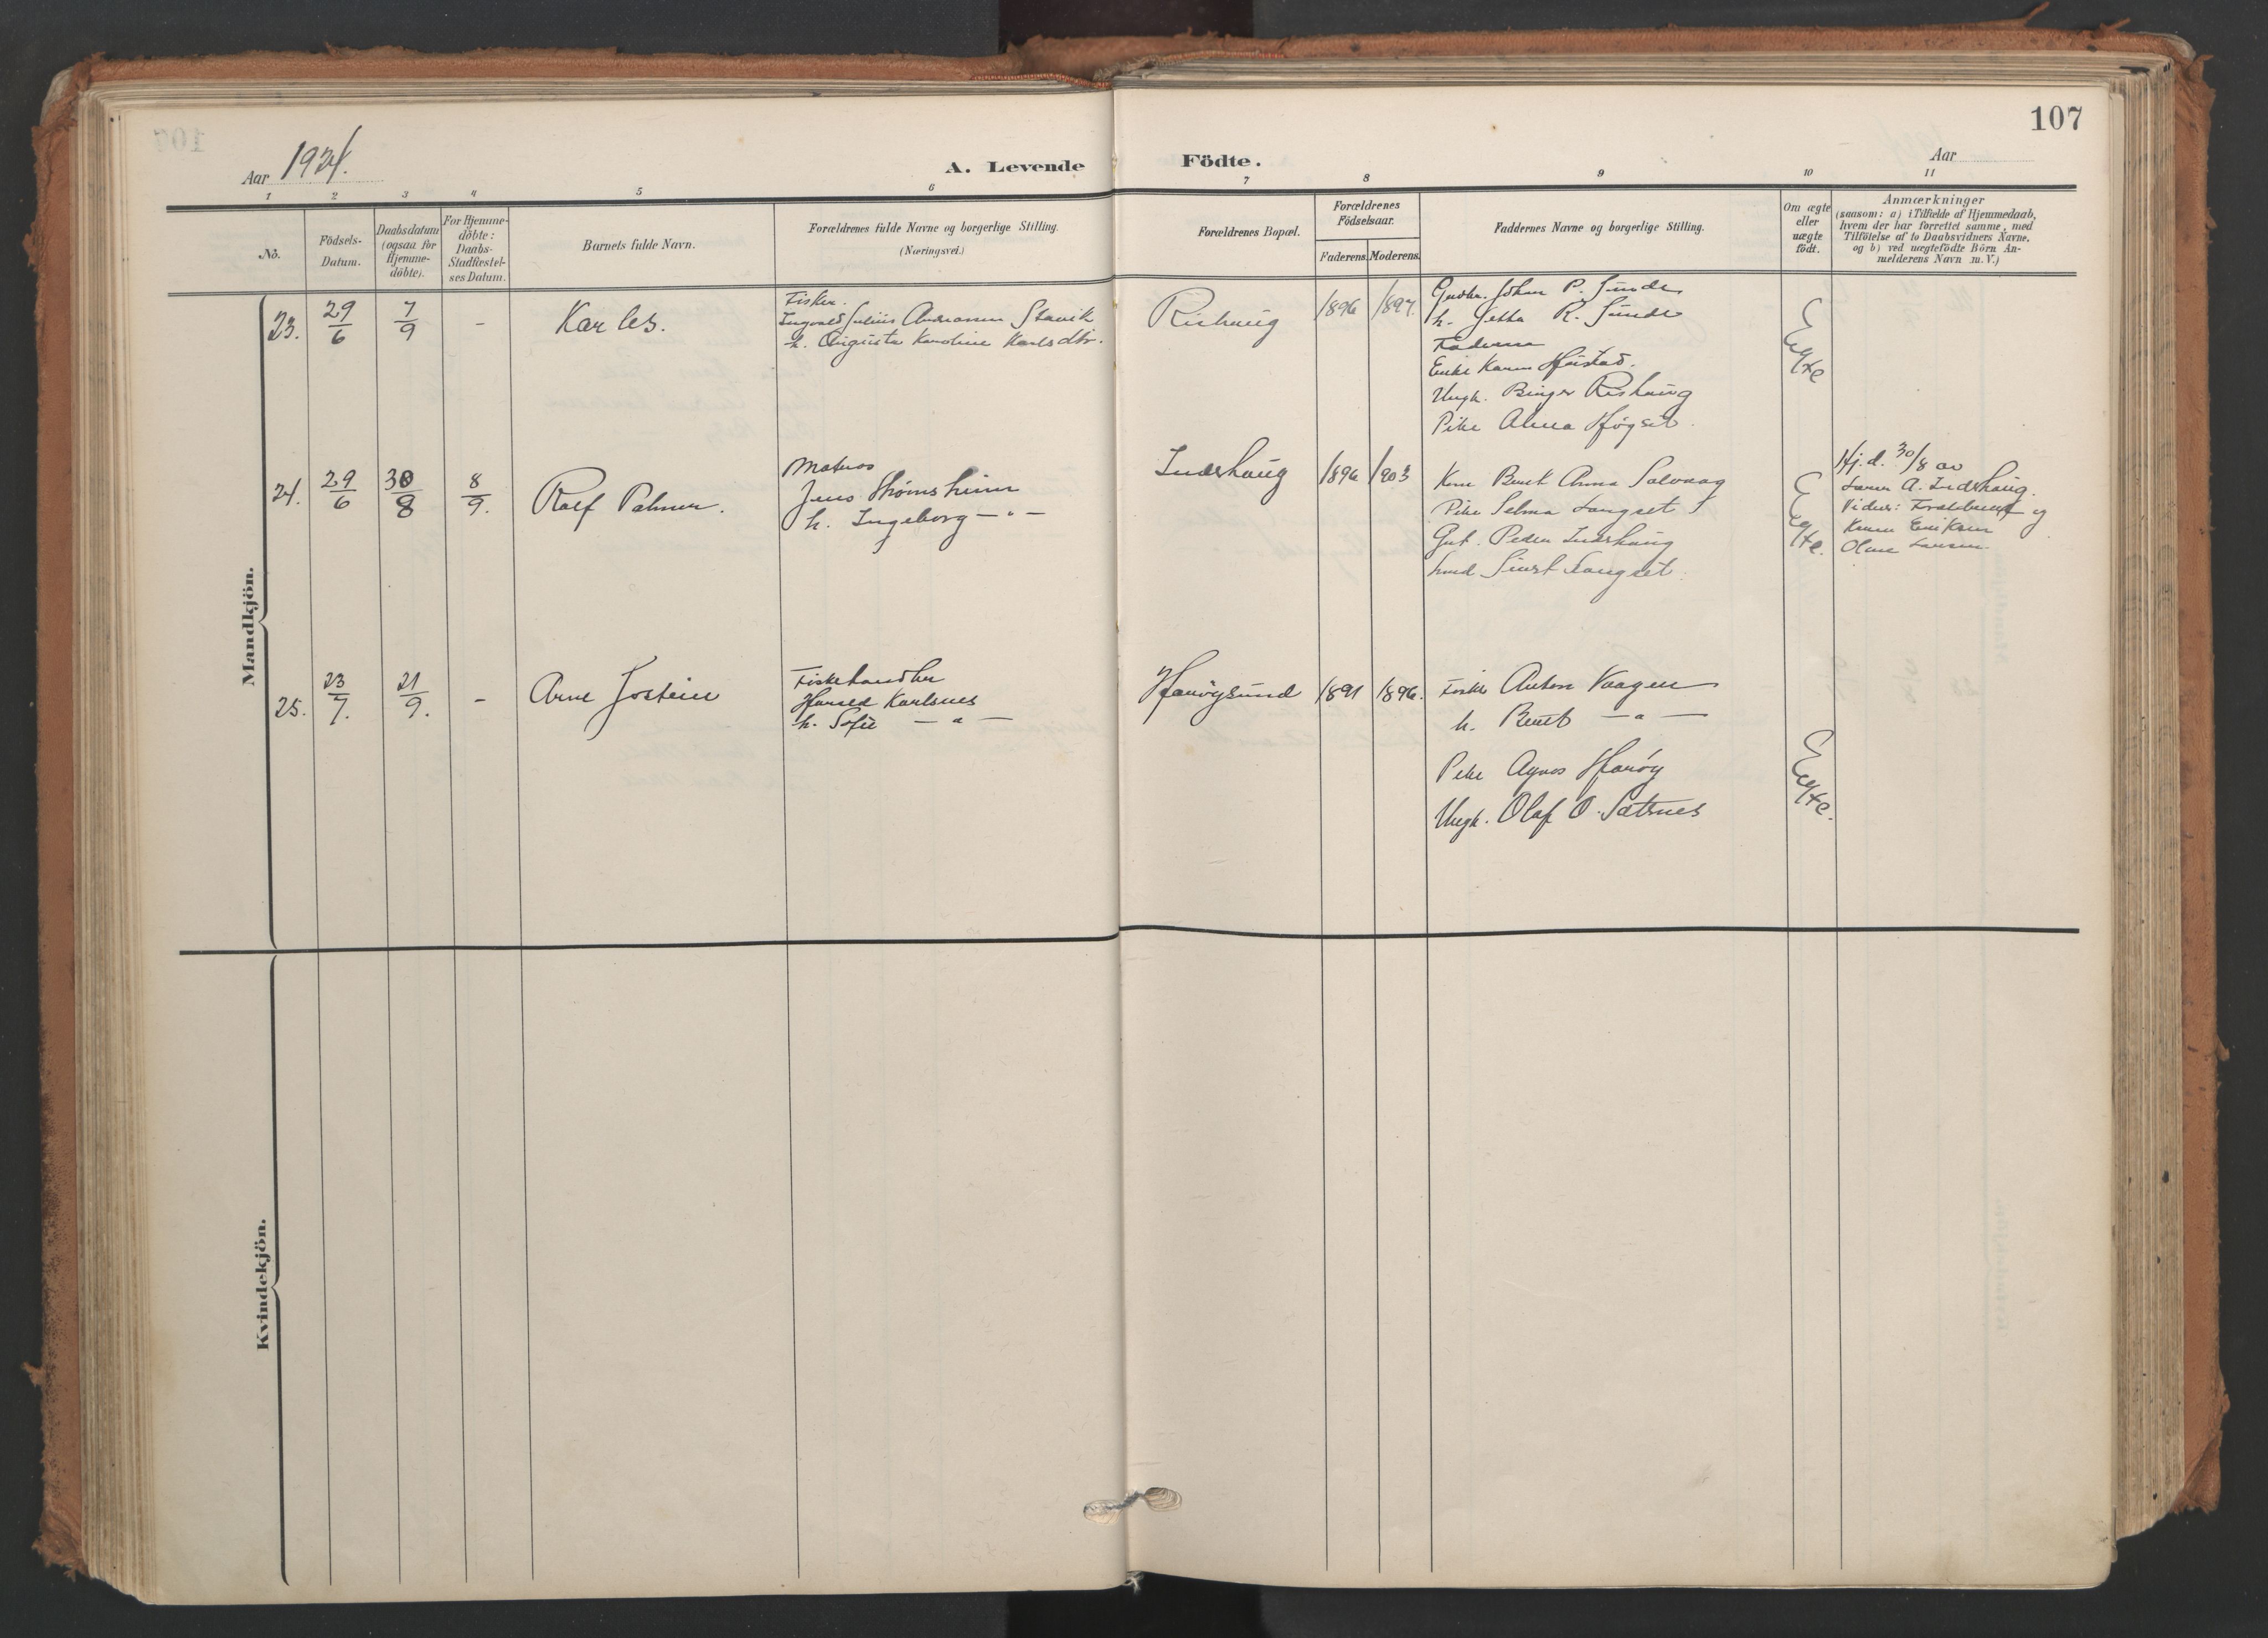 107
Aar 1924.
A. Levende Födte.
Aar
1 2 3 4 5 6 7 8 9 10 11
No.
Födsels-
Datum.
Daabsdatum
(ogsaa for
Hjemme-
döbte).
For Hjemme-
döbte:
Daabs-
Stadfæstel-
ses Datum.
Barnets fulde Navn.
Forældrenes fulde Navne og borgerlige Stilling.
(Næringsvei.)
Forældrenes Bopæl.
Forældrenes
Födselsaar.
Faderens. Moderens.
Faddernes Navne og borgerlige Stilling.
Om ægte
eller
uægte
födt.
Anmærkninger
(saasom: a) i Tilfælde af Hjemmedaab,
hvem der har forrettet samme, med
Tilföielse af to Daabsvidners Navne,
og b) ved uægtefödte Börn An-
melderens Navn m. V.)
Mandkjön.
23. 29/6 7/9 - Karles.
Fisker.
Ingvald Julius Andreassen Stavik
h. Augusta Karoline Karlsdtr.
Rishaug 1896 1897.
Gudbr. Johan P. Sunde
h. Jetta R. Sunde
Faderen
Enke Karen Hustad.
Ungk. Binger Rishaug
Pike Alma Høgset.
Egte
24. 29/6 30/8 8/9. Rolf Palmer.
Matros
Jens Strømsheim
h. Ingeborg - " -
Inderhaug 1896 1903
Kone Berit Anna Solvaag
Pike Selma Langset
Gut. Peder Inderhaug
Sivert Langset.
Egte.
Hj.d. 30/8 av
Lærer A. Inderhaug.
Vidner: og
Eriksen
Larsen.
25. 23/7. 21/9. - Arne Jostein
Fiskehandler
Harald Karlsnes
h. Sofie - " -
Harøysund 1891 1896.
Fisker Anton Vaagen
h. Berit - " -
Pike Agnes Harøy
Ungk. Olaf O. Sætrnes
Egte.
Kvindekjön.